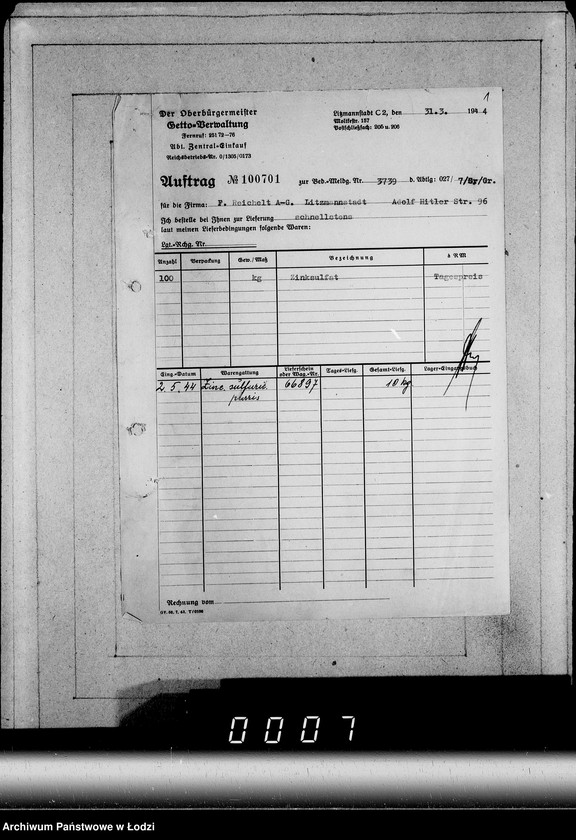 1
Der Oberbürgermeister
Getto-Verwaltung
Fernruf: 25172-76
Abt. Zentral-Einkauf
Reichsbetriebs-Nr. 0/1305/0173
Litzmannstadt C 2, den 31.3. 1944
Moltkestr. 157
Postschließfach: 205 u. 206
Auftrag № 100701 zur Bed.-Meldg. Nr. 3739 d. Abtlg: 027/ 7/Sy/Gr.
für die Firma: F. Reichelt A-G. Litzmannstadt Adolf Hitler Str. 96
Ich bestelle bei Ihnen zur Lieferung schnellstens
laut meinen Lieferbedingungen folgende Waren:
Lgt.-Rchg. Nr.
Anzahl Verpackung Gew./Maß Bezeichnung à RM
100 kg Zinksulfat Tagespreis
Eing.-Datum Warengattung Lieferschein oder Wag.-Nr. Tages-Liefg. Gesamt-Liefg. Lager-Eingangsbuch
2.5.44 Zinc. sulfuric. 66897 10 kg
puris
Rechnung vom
0007
Archiwum Państwowe w Łodzi